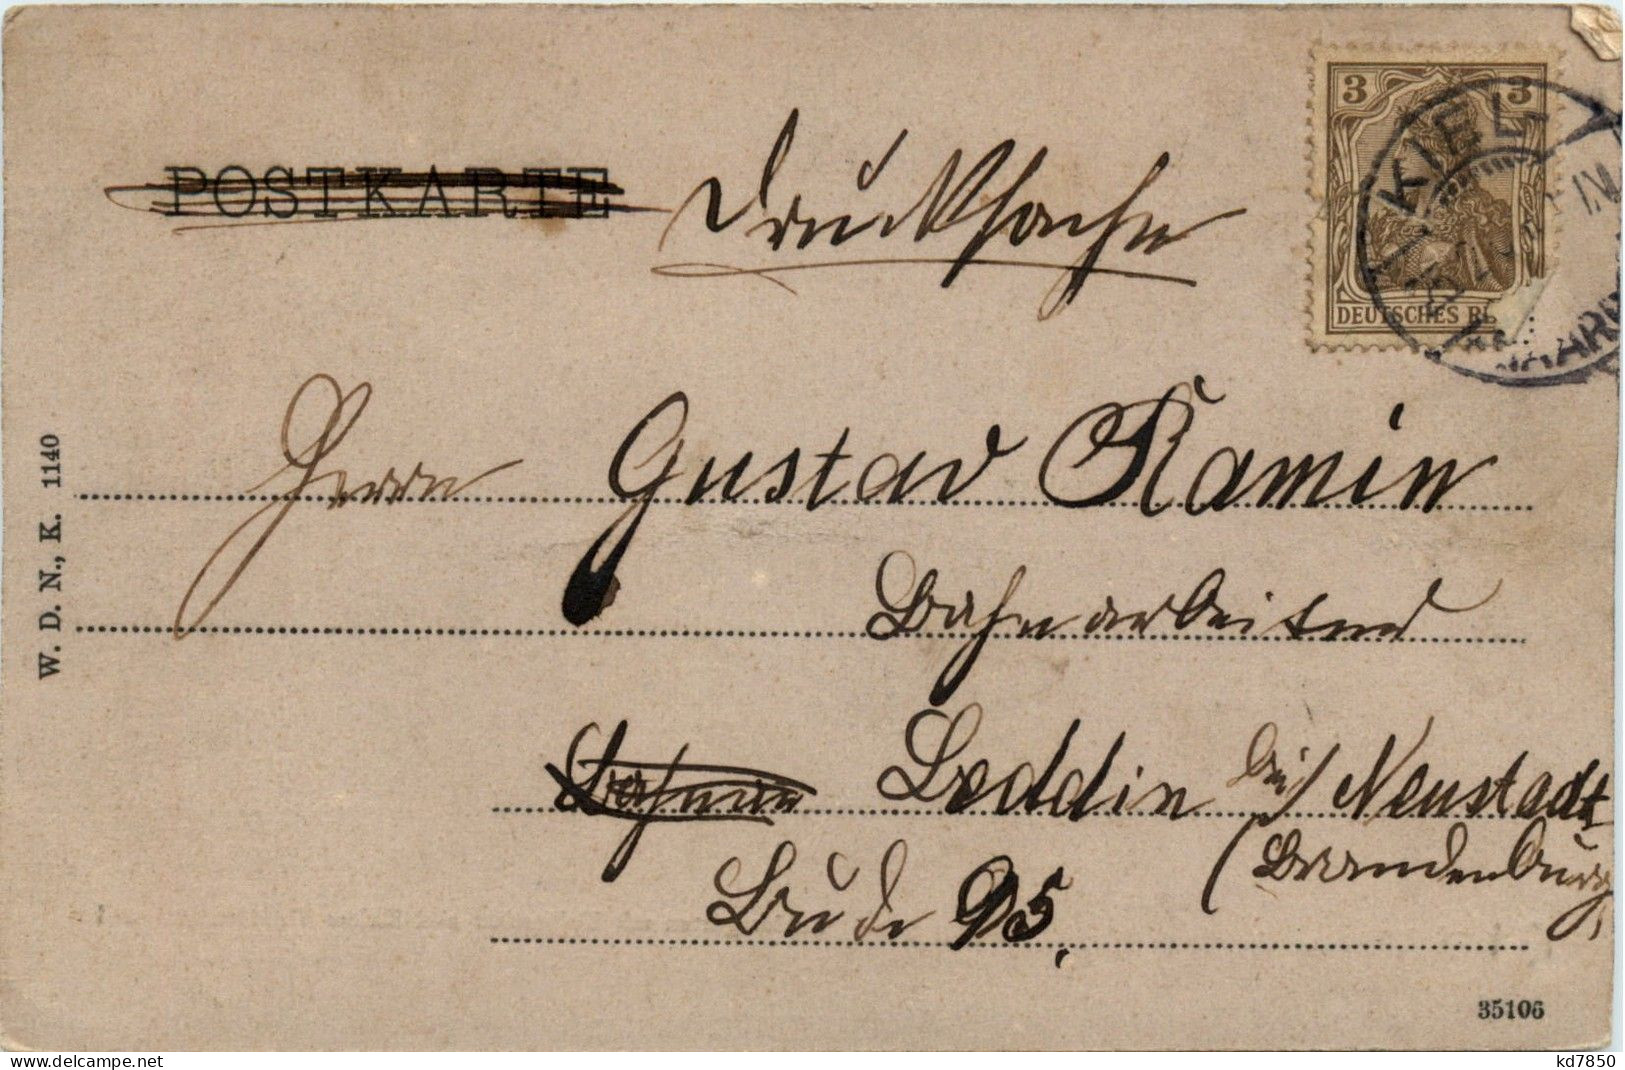 POSTKARTE Drucksache
3 3
KIEL
DEUTSCHES
Herrn Gustav Ramin
Bahnarbeiter
Leddin bei/ Neustadt
(Brandenburg
Bude 95.
W. D. N., K. 1140
35106
delcampe.net
kd7850